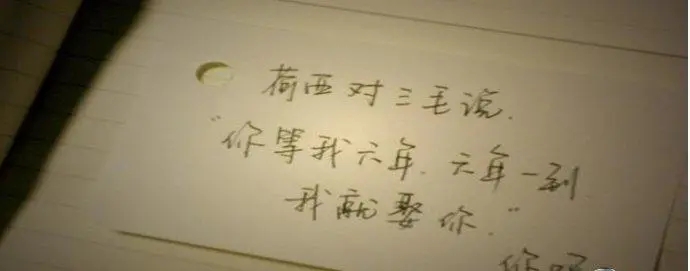 荷西对三毛说.
"你等我六年. 六年一到
我就娶你."